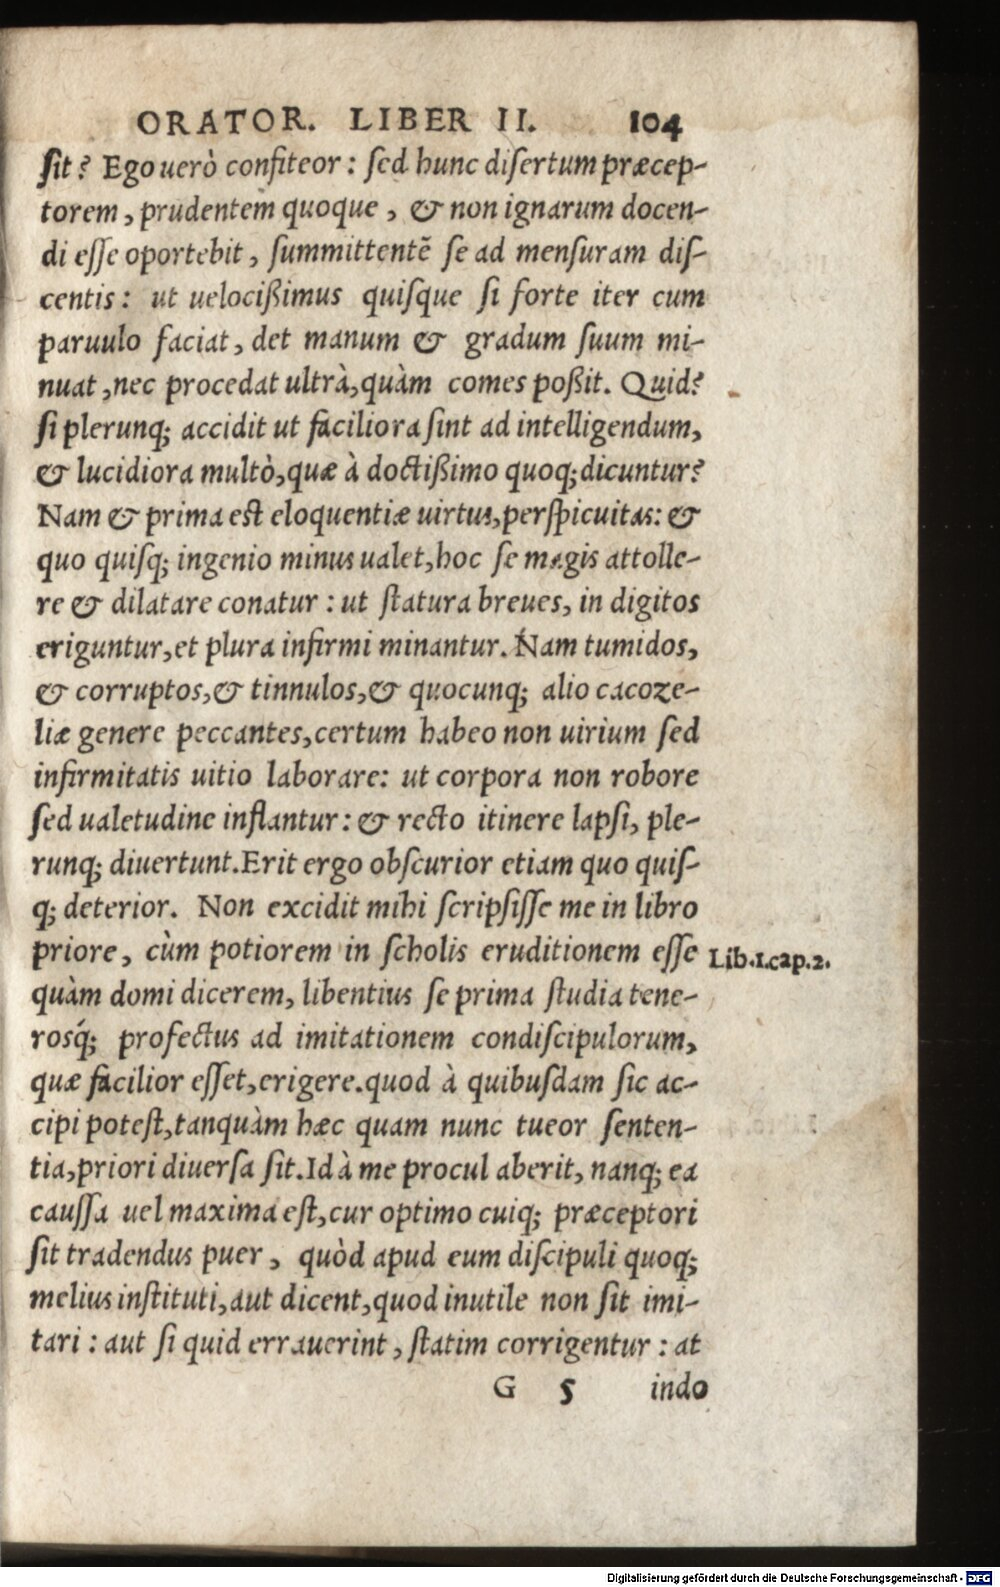 ORATOR. LIBER II. 104
ſit? Ego uerò confiteor: ſed hunc diſertum præcep-
torem, prudentem quoque, & non ignarum docen-
di eſſe oportebit, ſummittentẽ ſe ad menſuram diſ-
centis: ut uelocißimus quiſque ſi forte iter cum
paruulo faciat, det manum & gradum ſuum mi-
nuat, nec procedat ultrà, quàm comes poßit. Quid?
ſi plerunq; accidit ut faciliora ſint ad intelligendum,
& lucidiora multò, quæ à doctißimo quoq; dicuntur?
Nam & prima eſt eloquentiæ uirtus, perſpicuitas: &
quo quiſq; ingenio minus ualet, hoc ſe magis attolle-
re & dilatare conatur: ut ſtatura breues, in digitos
eriguntur, et plura infirmi minantur. Nam tumidos,
& corruptos, & tinnulos, & quocunq; alio cacoze-
liæ genere peccantes, certum habeo non uirium ſed
infirmitatis uitio laborare: ut corpora non robore
ſed ualetudine inflantur: & recto itinere lapſi, ple-
runq; diuertunt. Erit ergo obſcurior etiam quo quiſ-
q; deterior. Non excidit mihi ſcripſiſſe me in libro
priore, cùm potiorem in ſcholis eruditionem eſſe
Lib.1.cap.2.
quàm domi dicerem, libentius ſe prima ſtudia tene-
rosq́; profectus ad imitationem condiſcipulorum,
quæ facilior eſſet, erigere. quod à quibuſdam ſic ac-
cipi poteſt, tanquàm hæc quam nunc tueor ſenten-
tia, priori diuerſa ſit. Id à me procul aberit, nanq; ea
cauſſa uel maxima eſt, cur optimo cuiq; præceptori
ſit tradendus puer, quòd apud eum diſcipuli quoq;
melius inſtituti, aut dicent, quod inutile non ſit imi-
tari: aut ſi quid errauerint, ſtatim corrigentur: at
G 5 indo
Digitalisierung gefördert durch die Deutsche Forschungsgemeinschaft - DFG